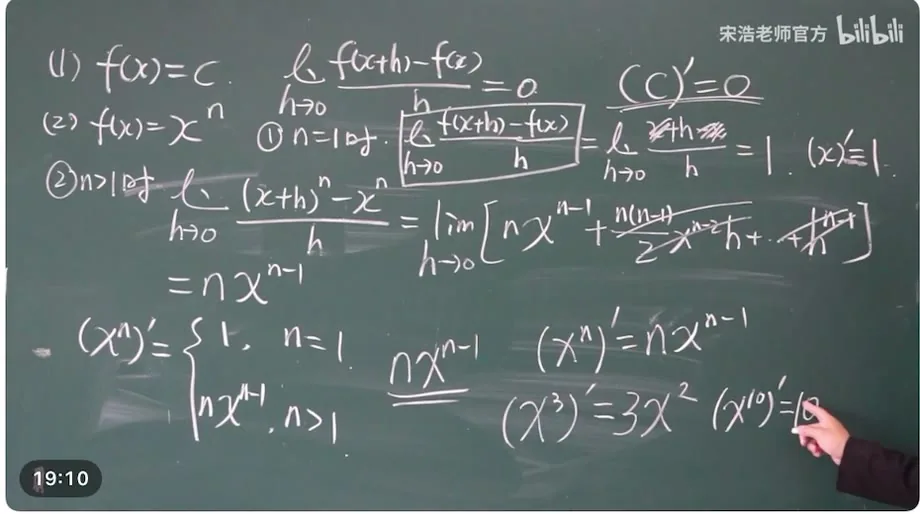 宋浩老师官方 bilibili
(1) f(x)=C. lim h→0 f(x+h)-f(x) / h = 0 (C)'=0
(2) f(x)=xⁿ ① n=1时. lim h→0 f(x+h)-f(x) / h = lim h→0 x+h-x / h = 1. (x)'=1.
② n>1时. lim h→0 (x+h)ⁿ-xⁿ / h = lim h→0 [nxⁿ⁻¹ + n(n-1)/2 xⁿ⁻²h + ... + hⁿ⁻¹]
= nxⁿ⁻¹
(xⁿ)' = { 1, n=1 nxⁿ⁻¹ (xⁿ)' = nxⁿ⁻¹
nxⁿ⁻¹, n>1 (x³)' = 3x² (x¹⁰)' = 10
19:10